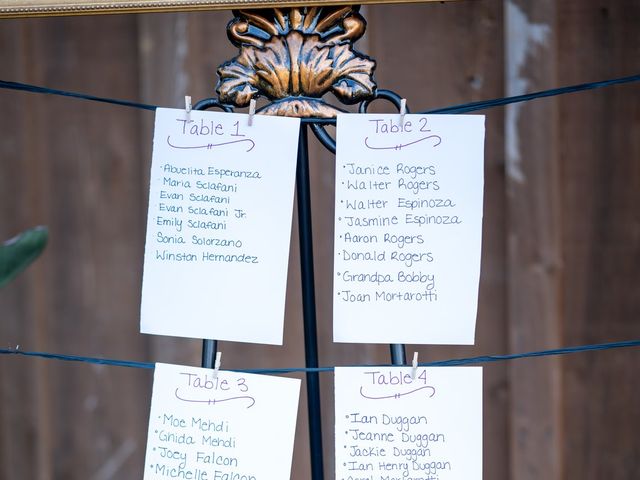 Table 1
· Abuelita Esperanza
· Maria Sclafani
Evan Sclafani
· Evan Sclafani Jr.
Emily Sclafani
Sonia Solorzano
Winston Hernandez
Table 2
· Janice Rogers
· Walter Rogers
· Walter Espinoza
· Jasmine Espinoza
· Aaron Rogers
· Donald Rogers
· Grandpa Bobby
· Joan Mortarotti
Table 3
· Moe Mehdi
· Ghida Mehdi
· Joey Falcon
· Michelle Falcon
Table 4
· Ian Duggan
· Jeanne Duggan
· Jackie Duggan
· Ian Henry Duggan